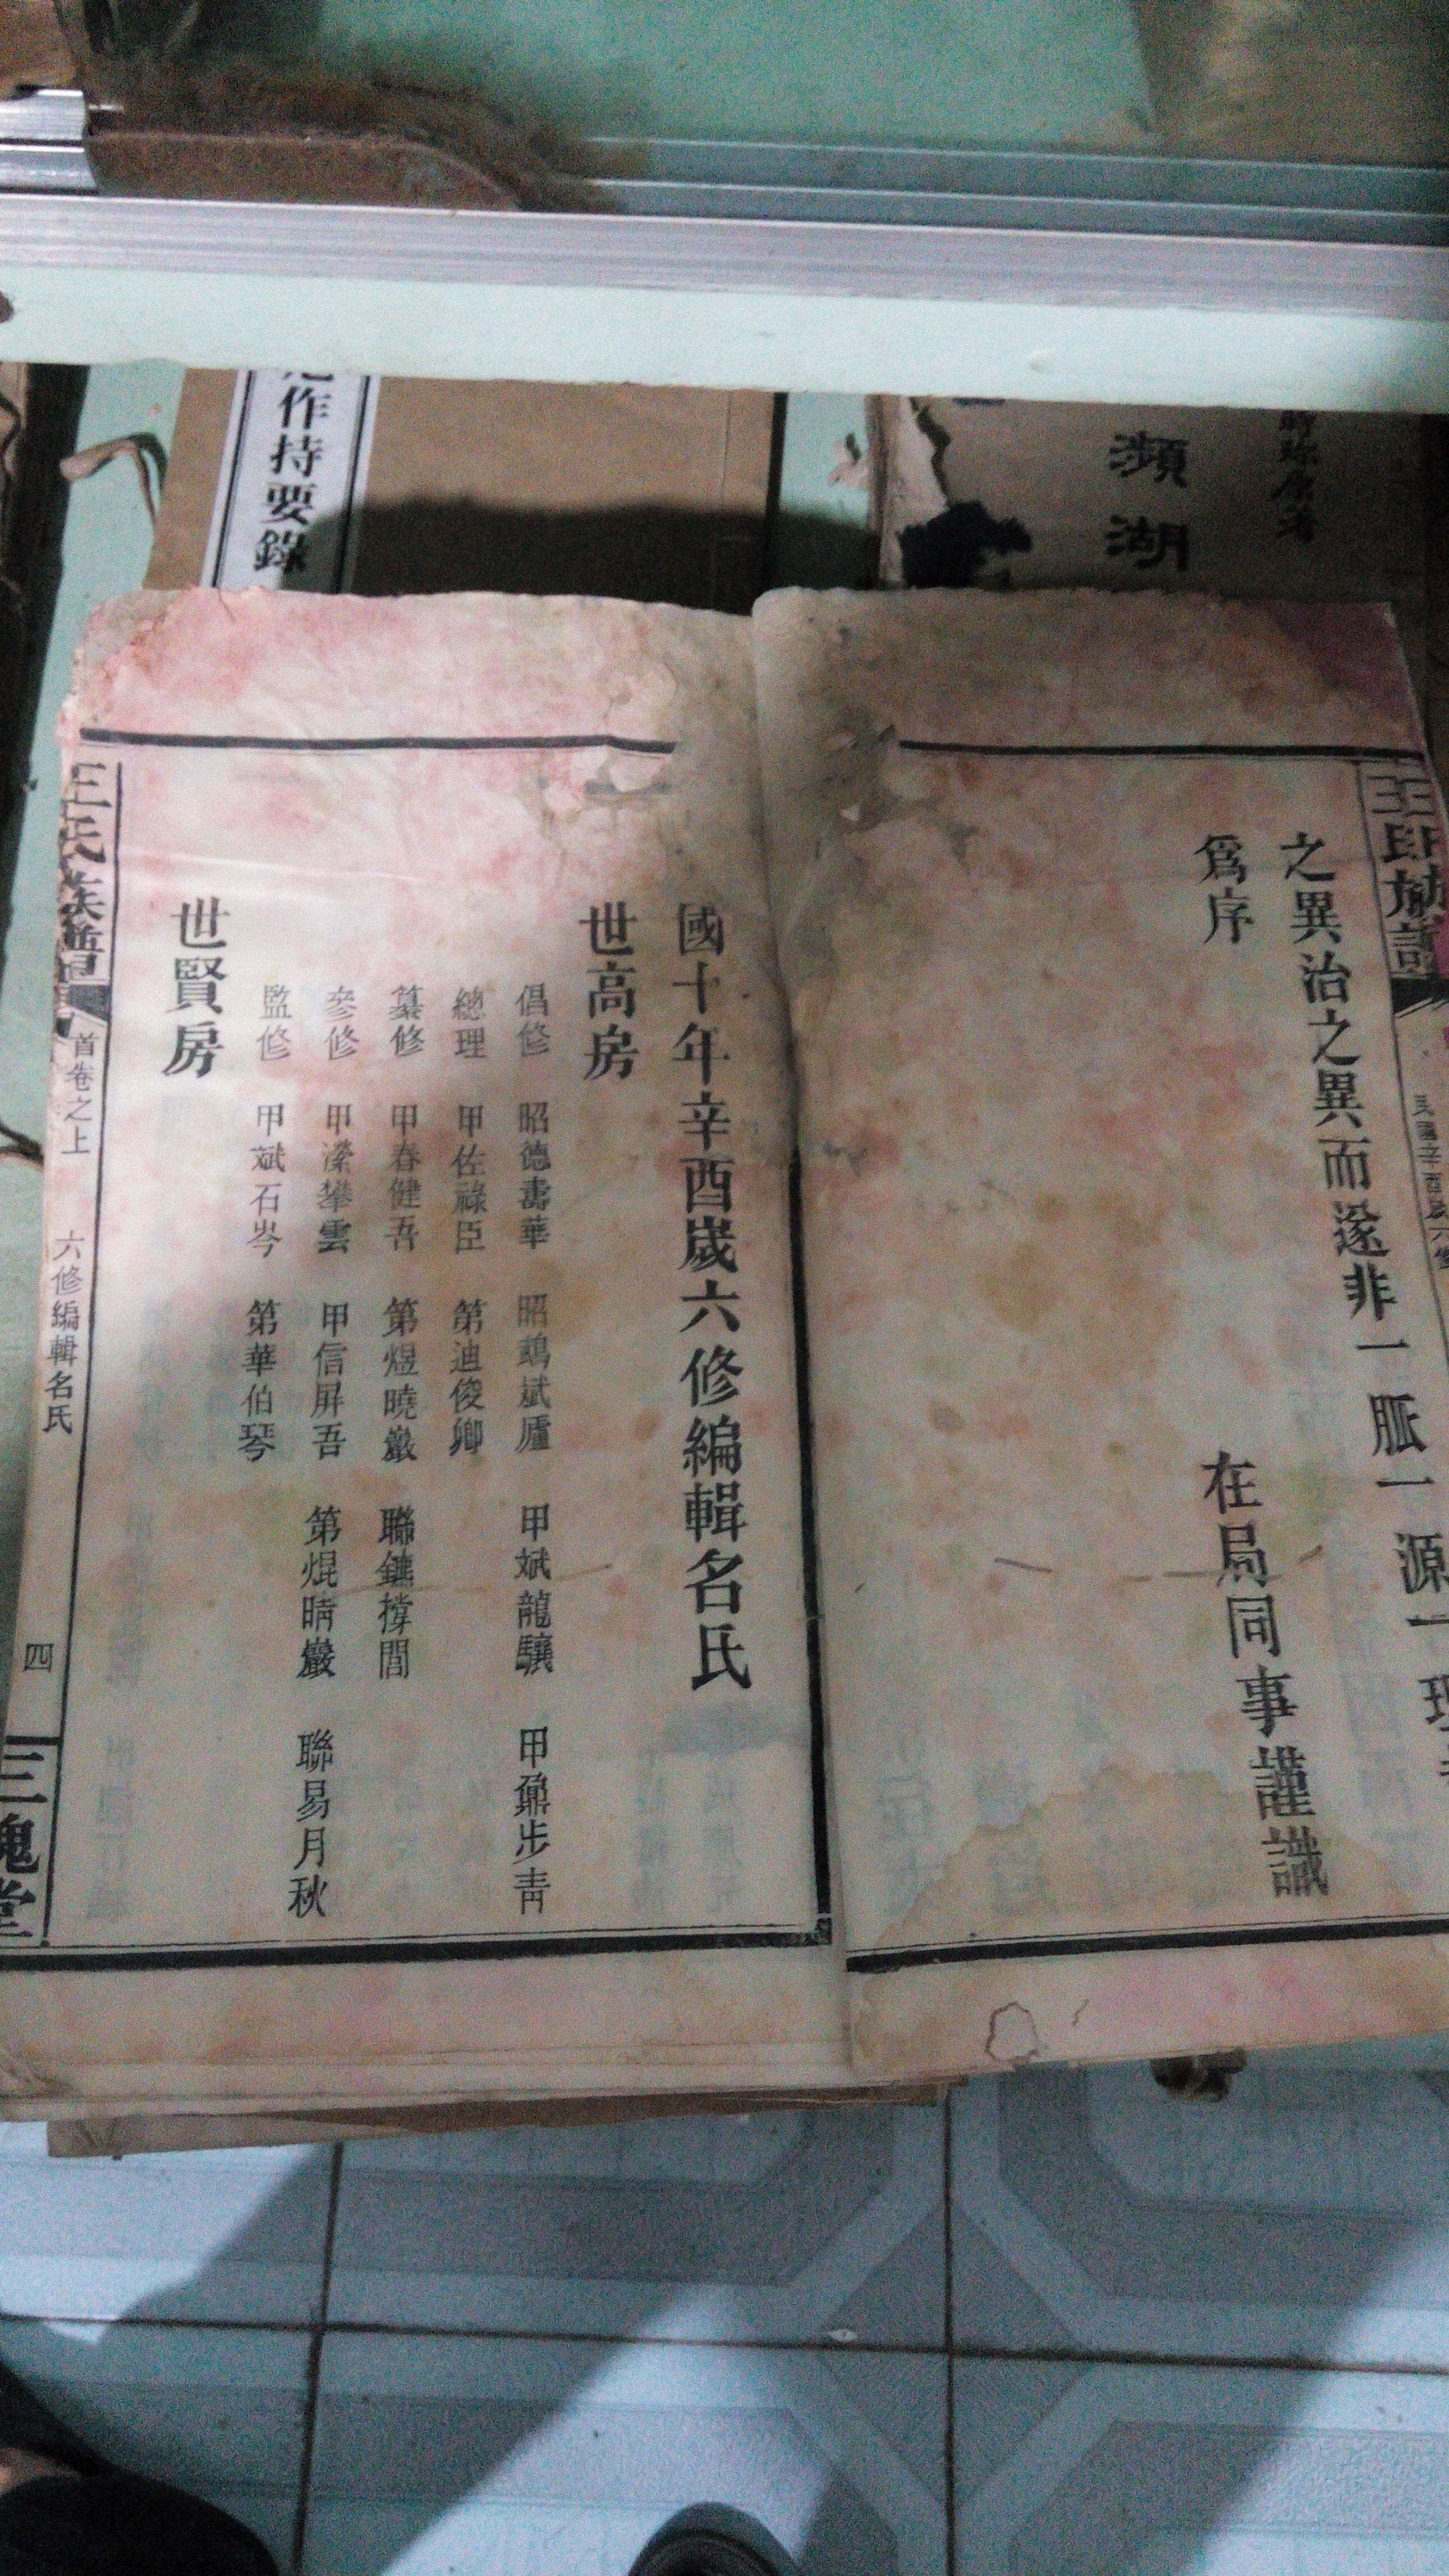 作持要錄
瀕湖
之異治之異而遂非一脈一源一理
為序
在局同事謹識
國十年辛酉歲六修編輯名氏
世高房
倡修 昭德壽華 昭鵡斌廬 甲斌龍驤 甲鼐步青
總理 甲佐祿臣 第迪俊卿
纂修 甲春健吾 第煜曉巖 聯鑣撐閭
參修 甲灤攀雲 甲信屏吾 第焜晴巖 聯易月秋
監修 甲斌石岑 第華伯琴
世賢房
王氏族譜
首卷之上
六修編輯名氏
四
三槐堂